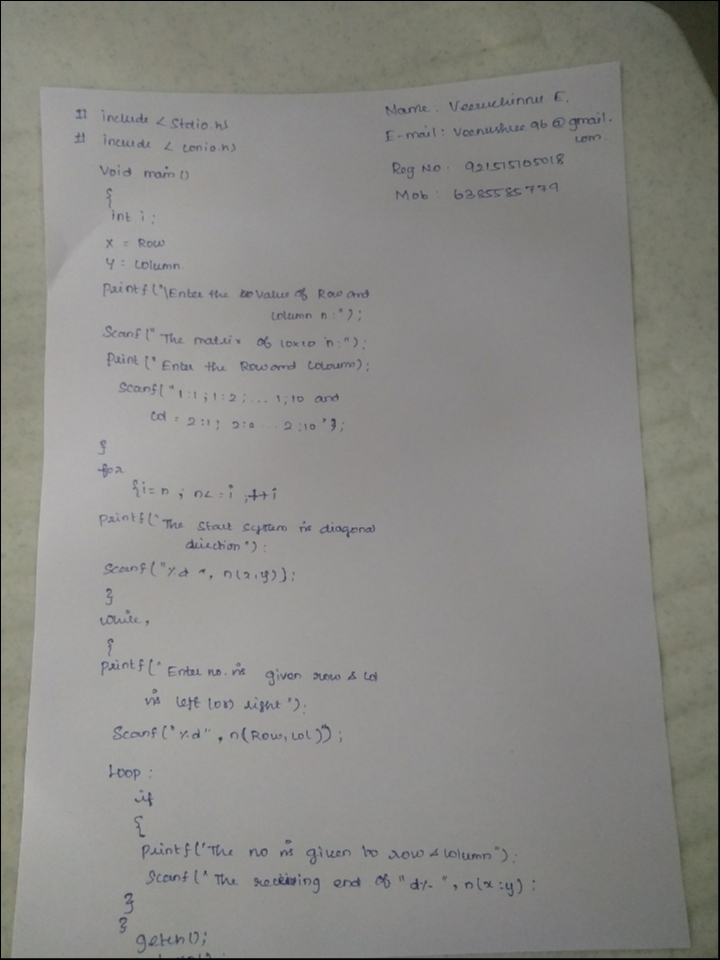 # include < Stdio.h>
# include < conio.h>
Void main ()
{
int i ;
X = Row
Y = column
Printf ("\Enter the value of Row and
column n : ");
Scanf (" The matrix of 10x10 n: ");
Print (" Enter the Row and Coloumn);
Scanf (" 1:1 ; 1:2 ; ... 1;10 and
Col = 2:1 ; 2:2 ... 2:10 ");
}
for
{ i = n ; n < = i ; ++i
Printf (" The Start System is diagonal
direction ") ;
Scanf ("%d ", n(x,y));
}
while,
{
Printf (" Enter no. is given row & Col
is left (or) right ");
Scanf ("%d", n(Row, Col)");
Loop :
if
{
Printf (" The no is given to row & column ");
Scanf (" The receiving end of "d% ", n(x:y) ;
}
}
getch();
Name : Veeruchinnu E.
E-mail : 96 @ gmail.
com
Reg No : 921515105018
Mob : 6385585779